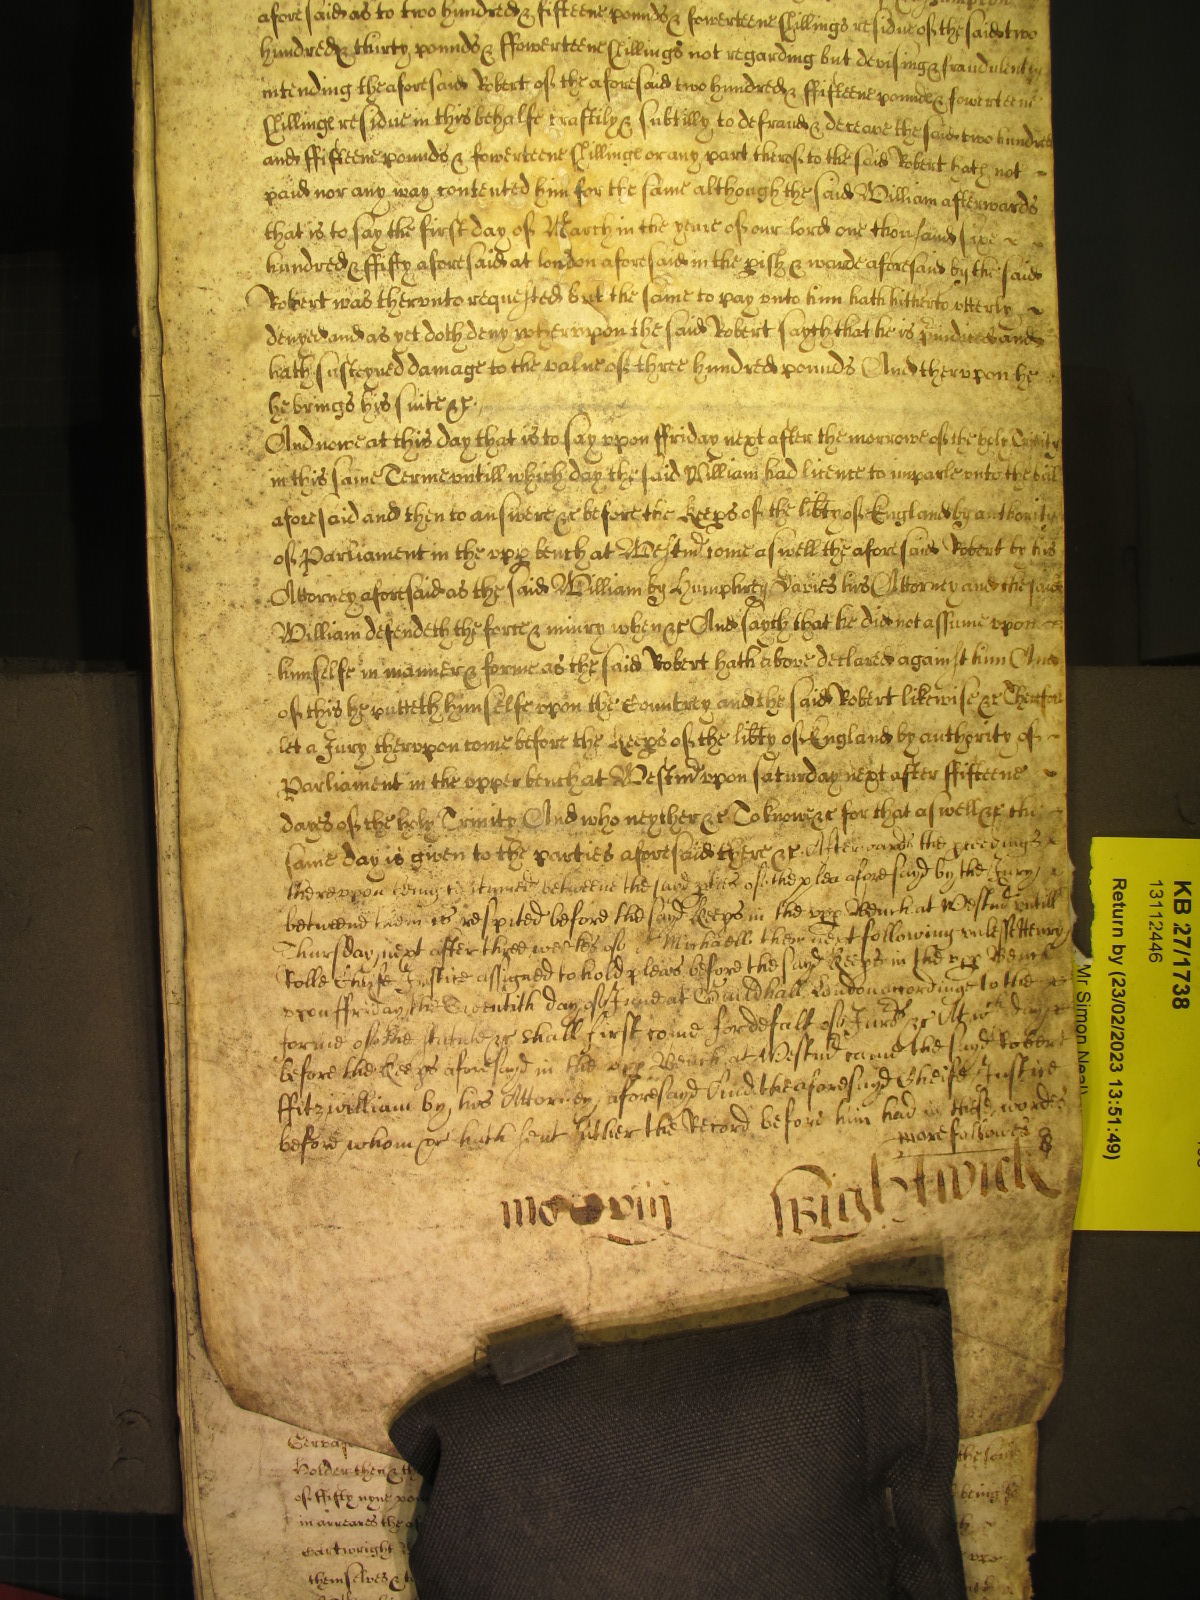 aforesaid as to two hundred & fifteene pounds & fowerteene shillings residue of the said two
hundred & thirty pounds & ffowerteene shillings not regarding but devising & fraudulently
intending the aforesaid Robert of the aforesaid two hundred & ffifteene pounds & fowerteene
shillings residue in this behalfe craftily & subtilly to defraud & deceave the said two hundred
and ffifteene pounds & fowerteene shillings or any part therof to the said Robert hath not
paid nor any way contented him for the same although the said William afterwards
that is to say the first day of March in the yeare of our lord one thousand sixe
hundred & ffifty aforesaid at london aforesaid in the pish & warde aforesaid by the said
Robert was therunto requested but the same to pay unto him hath hitherto utterly
denyed and as yet doth deny wherupon the said Robert sayth that he is and
hath susteyned damage to the value of three hundred pounds And therupon he
he brings his suite &c
And nowe at this day that is to say upon ffriday next after the morrowe of the holy Trinity
in this same Terme untill which day the said William had licence to imparle unto the bill
aforesaid and then to answere &c before the Keeps of the libty of England by authority
of Parliament in the upp bench at Westmr come aswell the aforesaid Robert by his
Attorney aforesaid as the said William by Humphrey Davies his Attorney and the said
William defendeth the force & iniury when &c And sayth that he did not assume upon
himselfe in manner & forme as the said Robert hath above declared against him And
of this he putteth himselfe upon the Countrey and the said Robert likewise &c Therfore
let a Jury therupon come before the Keeps of the libty of England by authority of
Parliament in the upper bench at Westmr upon Saturday next after ffifteene
dayes of the holy Trinity And who neyther &c To knowe &c for that aswell &c the
same day is given to the parties aforesaid there &c Afterwards the pceedings
thereuppon being continued betweene the sayd pties of the plea aforesayd by the Jury
betweene them is respited before the sayd Keeps in the upp Bench at Westmr untill
Thursday next after three weekes of St Michaell then next following unlesse Henry
Rolle Cheife Justice assigned to hold pleas before the sayd Keeps in the upp Bench
uppon ffriday the day of June at Guildhall London accordinge to the
forme of the statute &c shall first come for default of Jurs &c At wch day
before the Keeps aforesayd in the upp Bench at Westmr came the sayd Robert
ffitzwilliam by his Attorney aforesayd And the aforesayd Cheife Justice
before whom &c hath sent hither the Record before him had in these wordes
more followes
Wightwick
Servaq
Holder then & th
of ffifty nyne pou
in arreares the af
Cartwright
themselves & t
the said
being
KB 27/1738
13112446
Return by (23/02/2023 13:51:49)
Mr Simon Neal